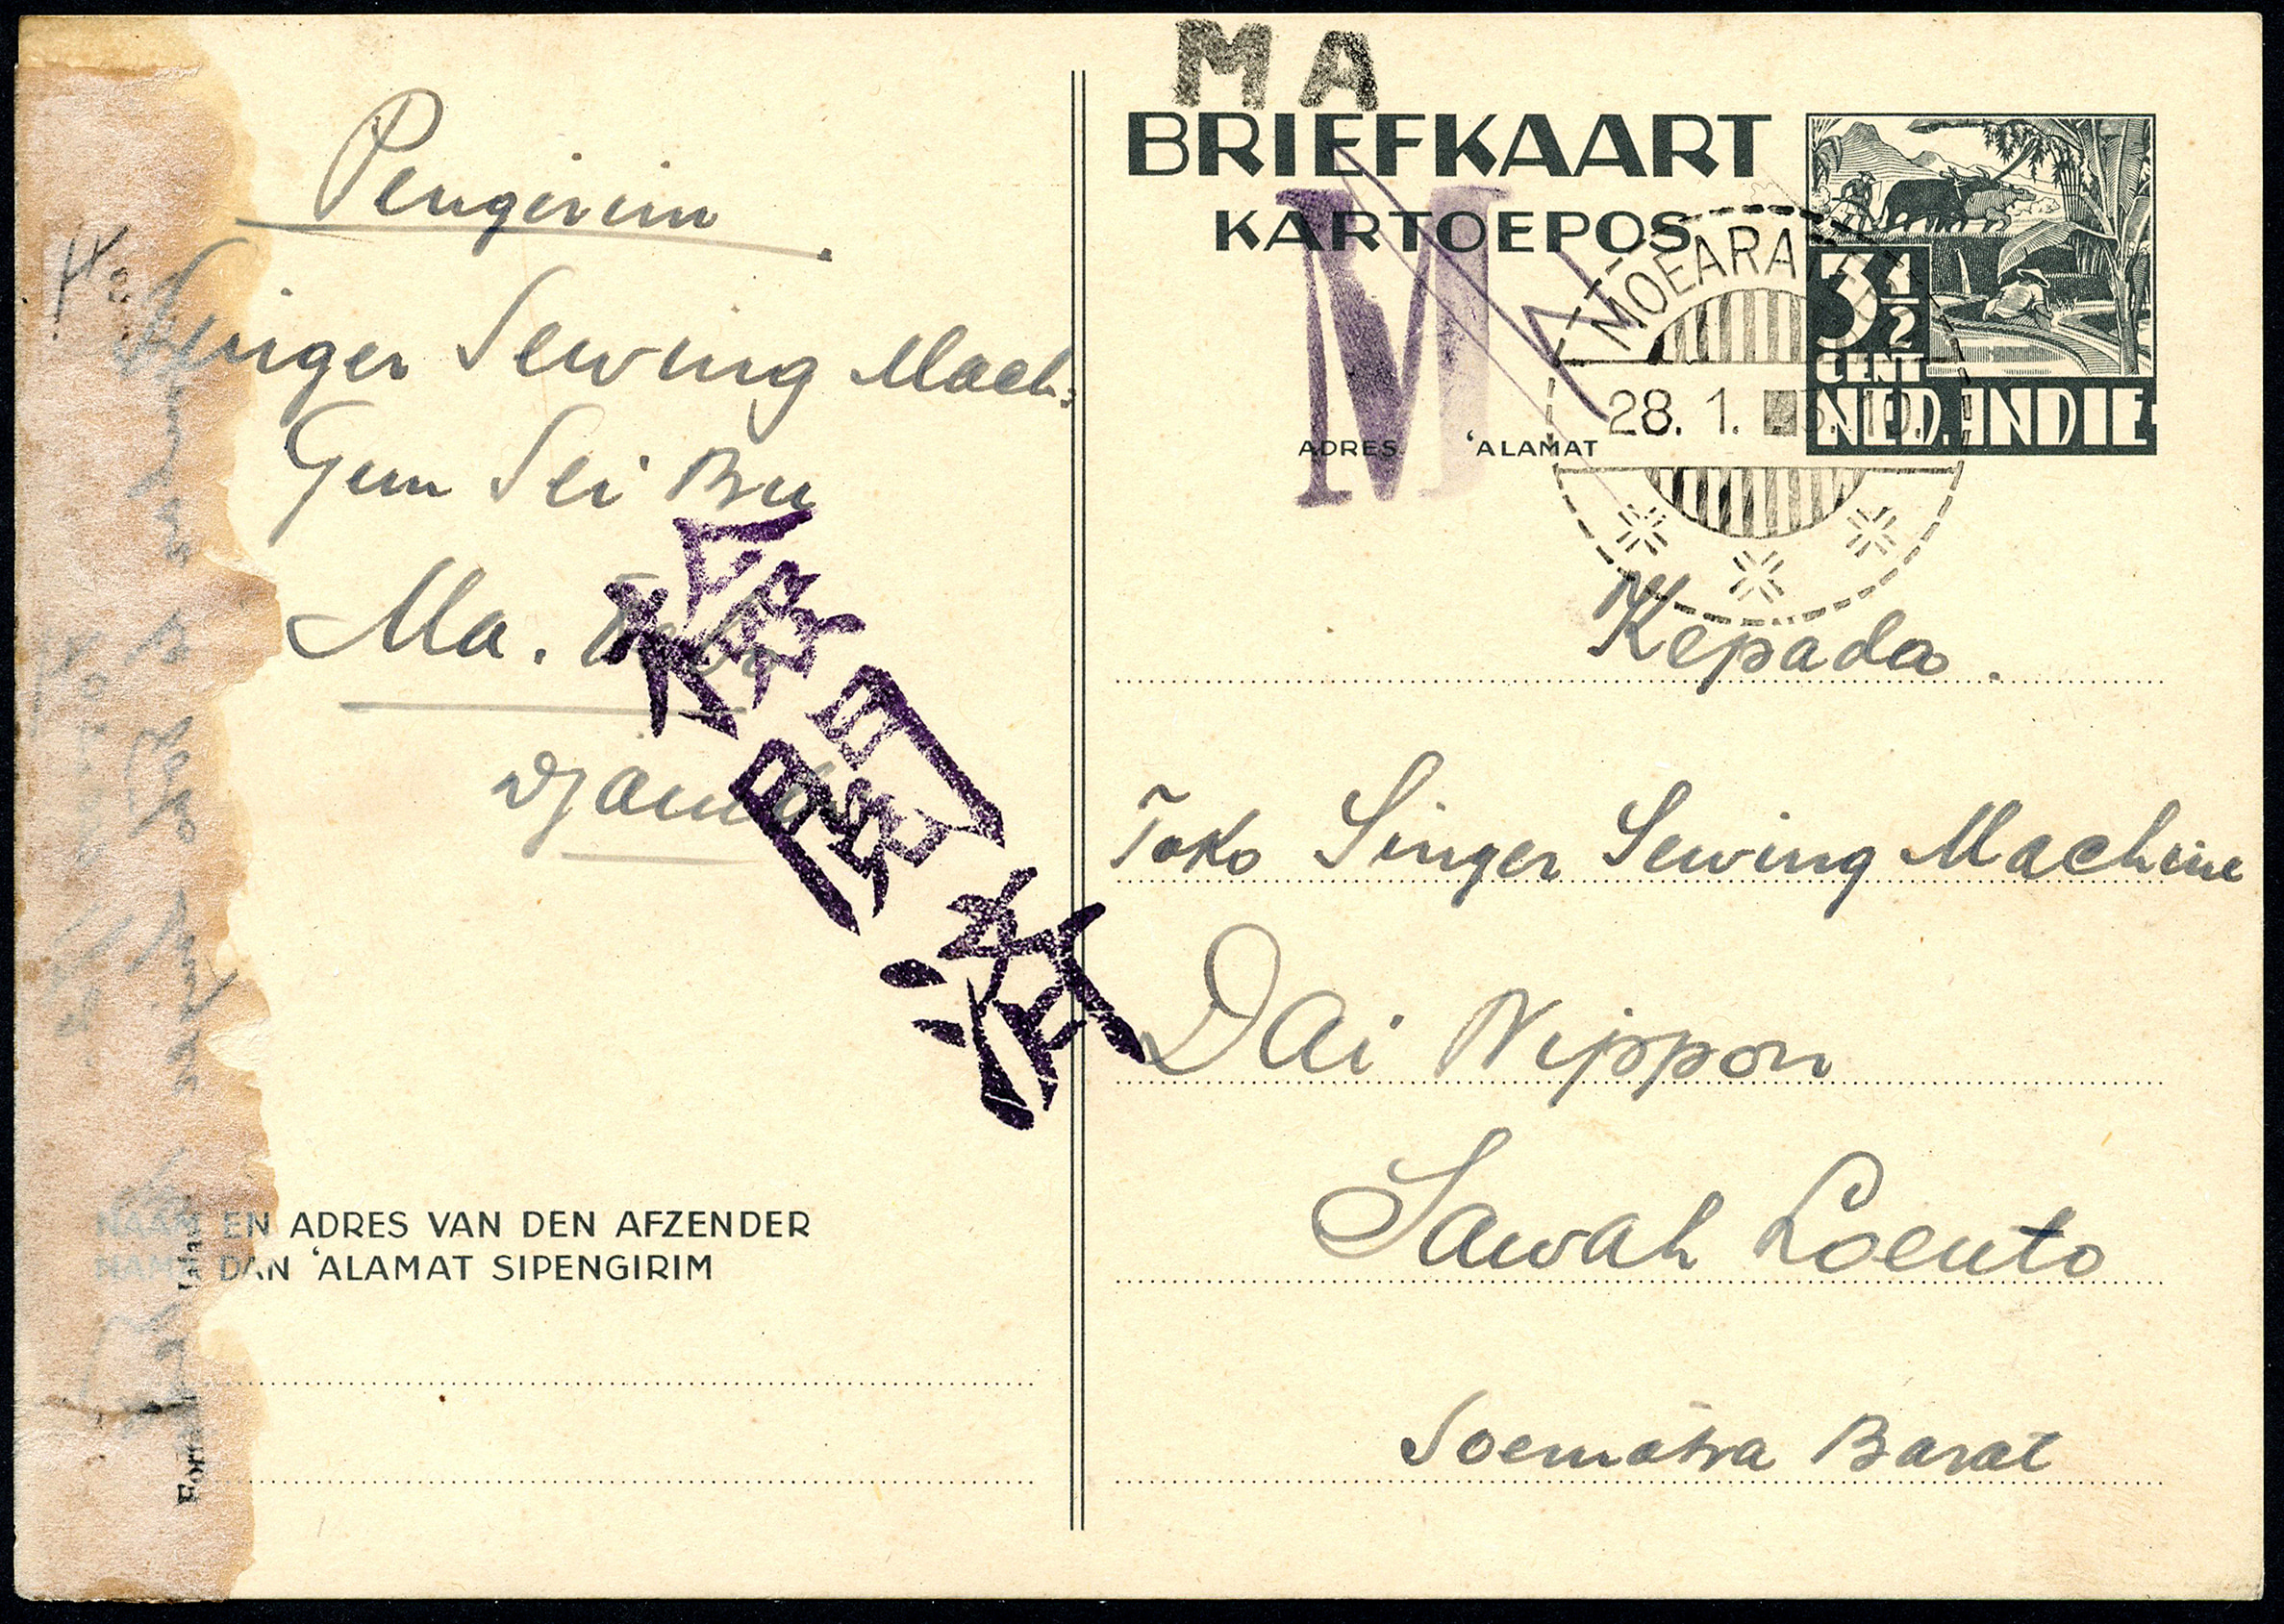 Pengirim.
Singer Sewing Mach:
Gun Sei Bu
Ma.
Djambi
検閲済
NAAM EN ADRES VAN DEN AFZENDER
NAMA DAN ‘ALAMAT SIPENGIRIM
MA
BRIEFKAART
KARTOEPOS
M
ADRES ‘ALAMAT
MOEARA
28. 1.
3½
CENT
NED. INDIE
Kepada.
Toko Singer Sewing Machine
Dai Nippon
Sawah Loento
Soematra Barat